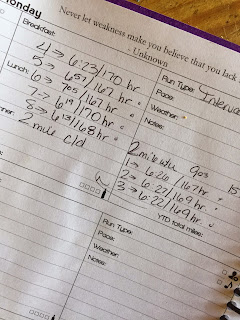 Monday
Never let weakness make you believe that you lack
- Unknown
Breakfast:
4 -> 6:23/170 hr
5 -> 6:57/167 hr
Lunch:
6 -> 7:05/167 hr
7 -> 6:19/170 hr
8 -> 6:13/168 hr
2 mile c/d
Run Type: Interva
Pace:
Weather:
Notes:
2 mile w/u 9:03
1 -> 6:26/167 hr
2 -> 6:27/169 hr
3 -> 6:22/169 hr
YTD total miles:
Run Type:
Pace:
Weather:
Notes: